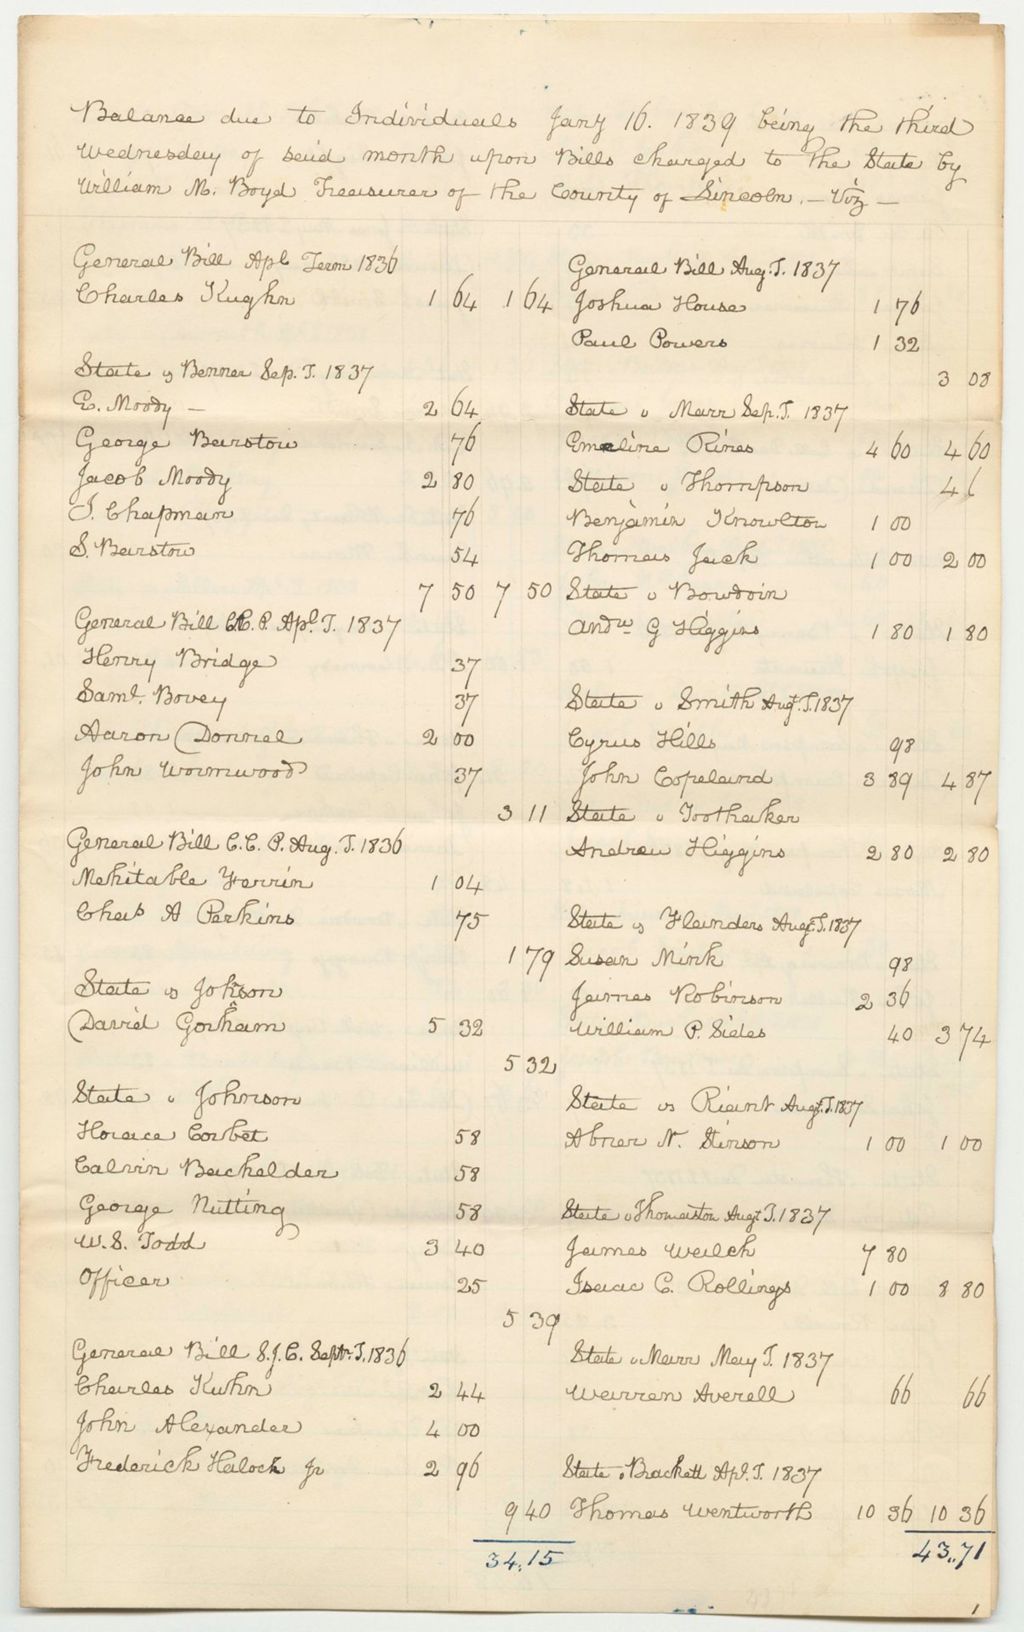 Balance due to Individuals Jany 16. 1839 being the third
Wednesday of said month upon Bills charged to the State by
William M. Boyd Treasurer of the County of Lincoln. — Viz —
General Bill Apl Term 1836
Charles Kughn 1 64 1 64
State vs Benner Sep. T. 1837
E. Moody — 2 64
George Barstow 76
Jacob Moody 2 80
J. Chapman 76
S. Barstow 54
7 50 7 50
General Bill C.C.P. Apl. T. 1837
Henry Bridge 37
Saml. Bovey 37
Aaron Donnel 2 00
John Wormwood 37
3 11
General Bill C.C.P. Aug. T. 1836
Mehitable Ferrin 1 04
Chas A Perkins 75
1 79
State vs Johnson
David Gorham 5 32
5 32
State v Johnson
Horace Corbet 58
Calvin Bachelder 58
George Nutting 58
W. S. Todd 3 40
Officer 25
5 39
General Bill S.J.C. Sept. T. 1836
Charles Kuhn 2 44
John Alexander 4 00
Frederick Haloch Jr 2 96
9 40
34.15
General Bill Aug. T. 1837
Joshua House 1 76
Paul Powers 1 32
3 08
State v Marr Sep. T. 1837
Emeline Rines 4 60 4 60
State v Thompson 4
Benjamin Knowlton 1 00
Thomas Jack 1 00 2 00
State v Bowdoin
Andw G Higgins 1 80 1 80
State v Smith Augt. T. 1837
Cyrus Hills 98
John Copeland 3 89 4 87
State v Toothaker
Andrew Higgins 2 80 2 80
State vs Flanders Augt. T. 1837
Susan Mink 98
James Robinson 2 36
William P. Sides 40 3 74
State vs Riant Augt. T. 1837
Abner N. Stinson 1 00 1 00
State v Thomaston Augt T. 1837
James Walch 7 80
Isaac C. Rollings 1 00 8 80
State v Marr May T. 1837
Warren Averell 66 66
State v Brackett Apl. T. 1837
Thomas Wentworth 10 36 10 36
43.71
1